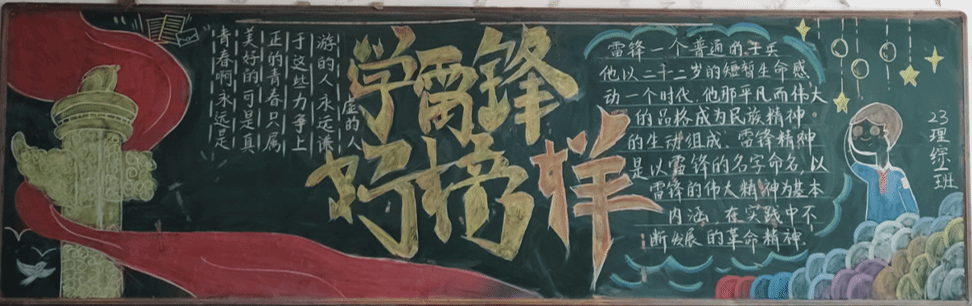 青春啊永远是
美好的可是真
正的青春只属
于这些力争上
游的人永远谦
虚的人
学雷锋
好榜样
雷锋一个普通的士兵
他以二十二岁的短暂生命感
动一个时代.他那平凡而伟大
的品格成为民族精神
的生动组成.雷锋精神
是以雷锋的名字命名,以
雷锋的伟大精神为基本
内涵,在实践中不
断发展的革命精神.
23理综二班